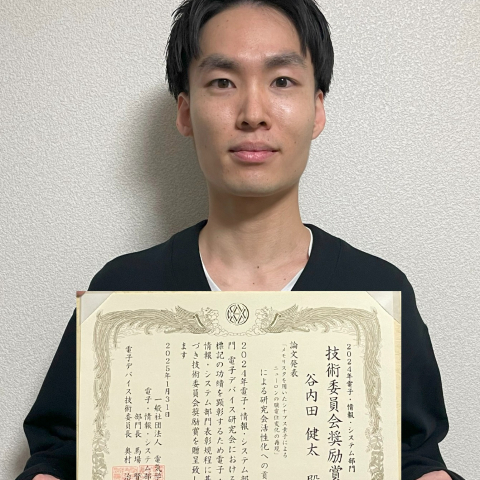 2024年電子・情報・システム部門
技術委員会奨励賞
谷内田 健太 殿
論文発表
「メモリスタを用いたシナプス素子による
ニューロンの膜電位変化の再現」
による研究会活性化への貢
2024年電子・情報・システム部
門 電子デバイス研究会における
標記の功績を顕彰するため電子・
情報・システム部門表彰規程に基
づき技術委員会奨励賞を贈呈致し
ます
2025年1月31日
一般社団法人 電気
電子・情報・システム部
部門長 馬場
電子デバイス技術委員長 奥村 治